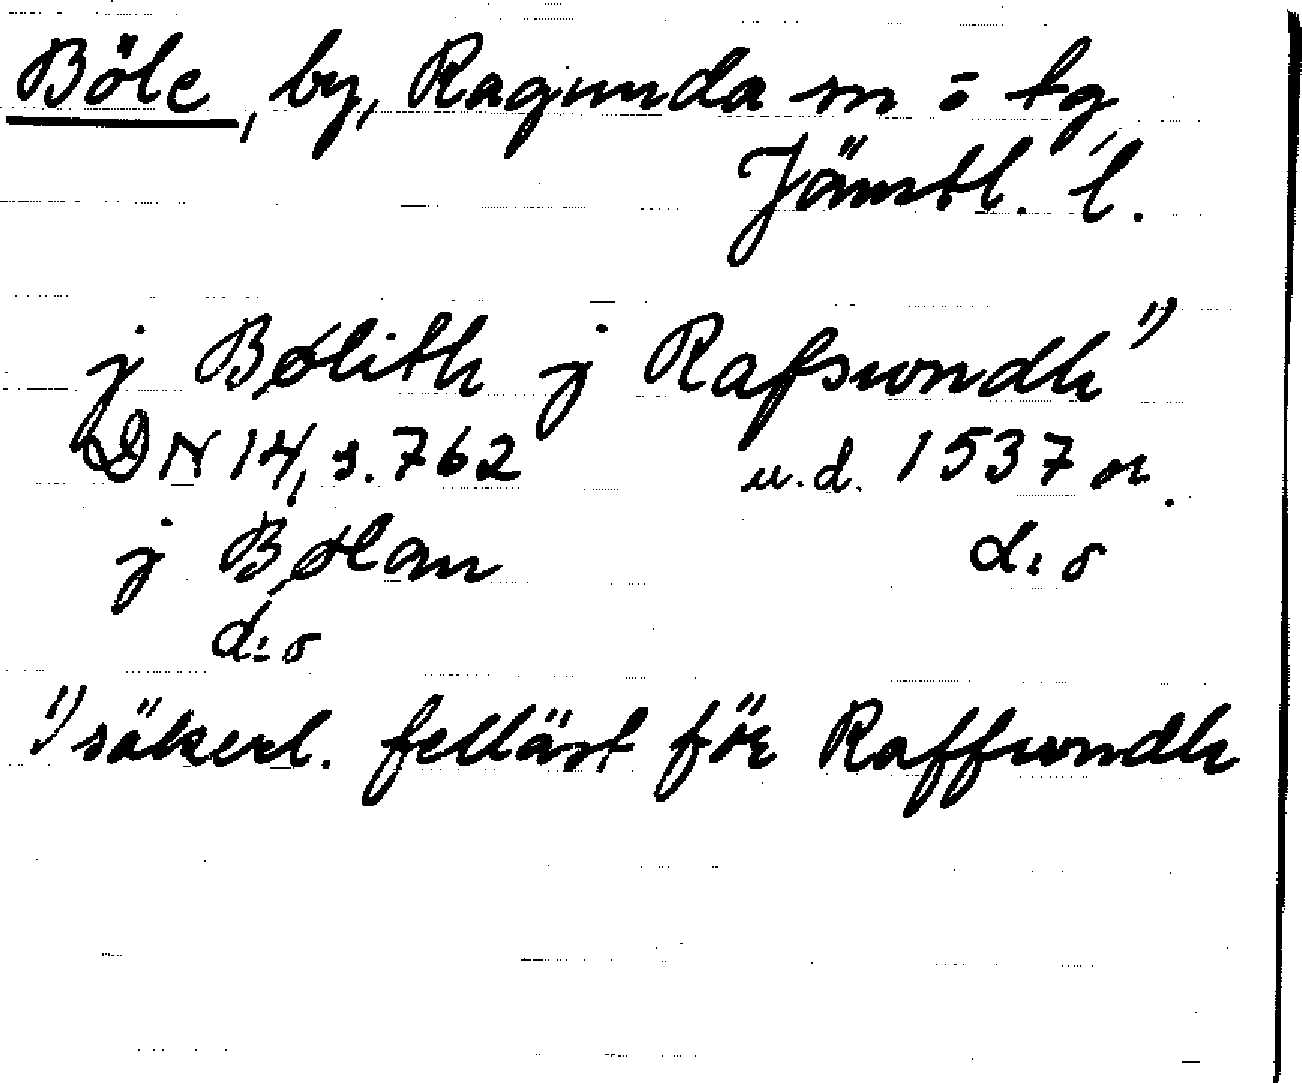 Böle, by, Ragunda sn = tg
Jämtl. l.
j Bølith j Rafswndh 1)
DN 14, s. 762 u.d. 1537 or.
j Bølan d:o
d:o
1) säkerl. felläst för Raffwndh